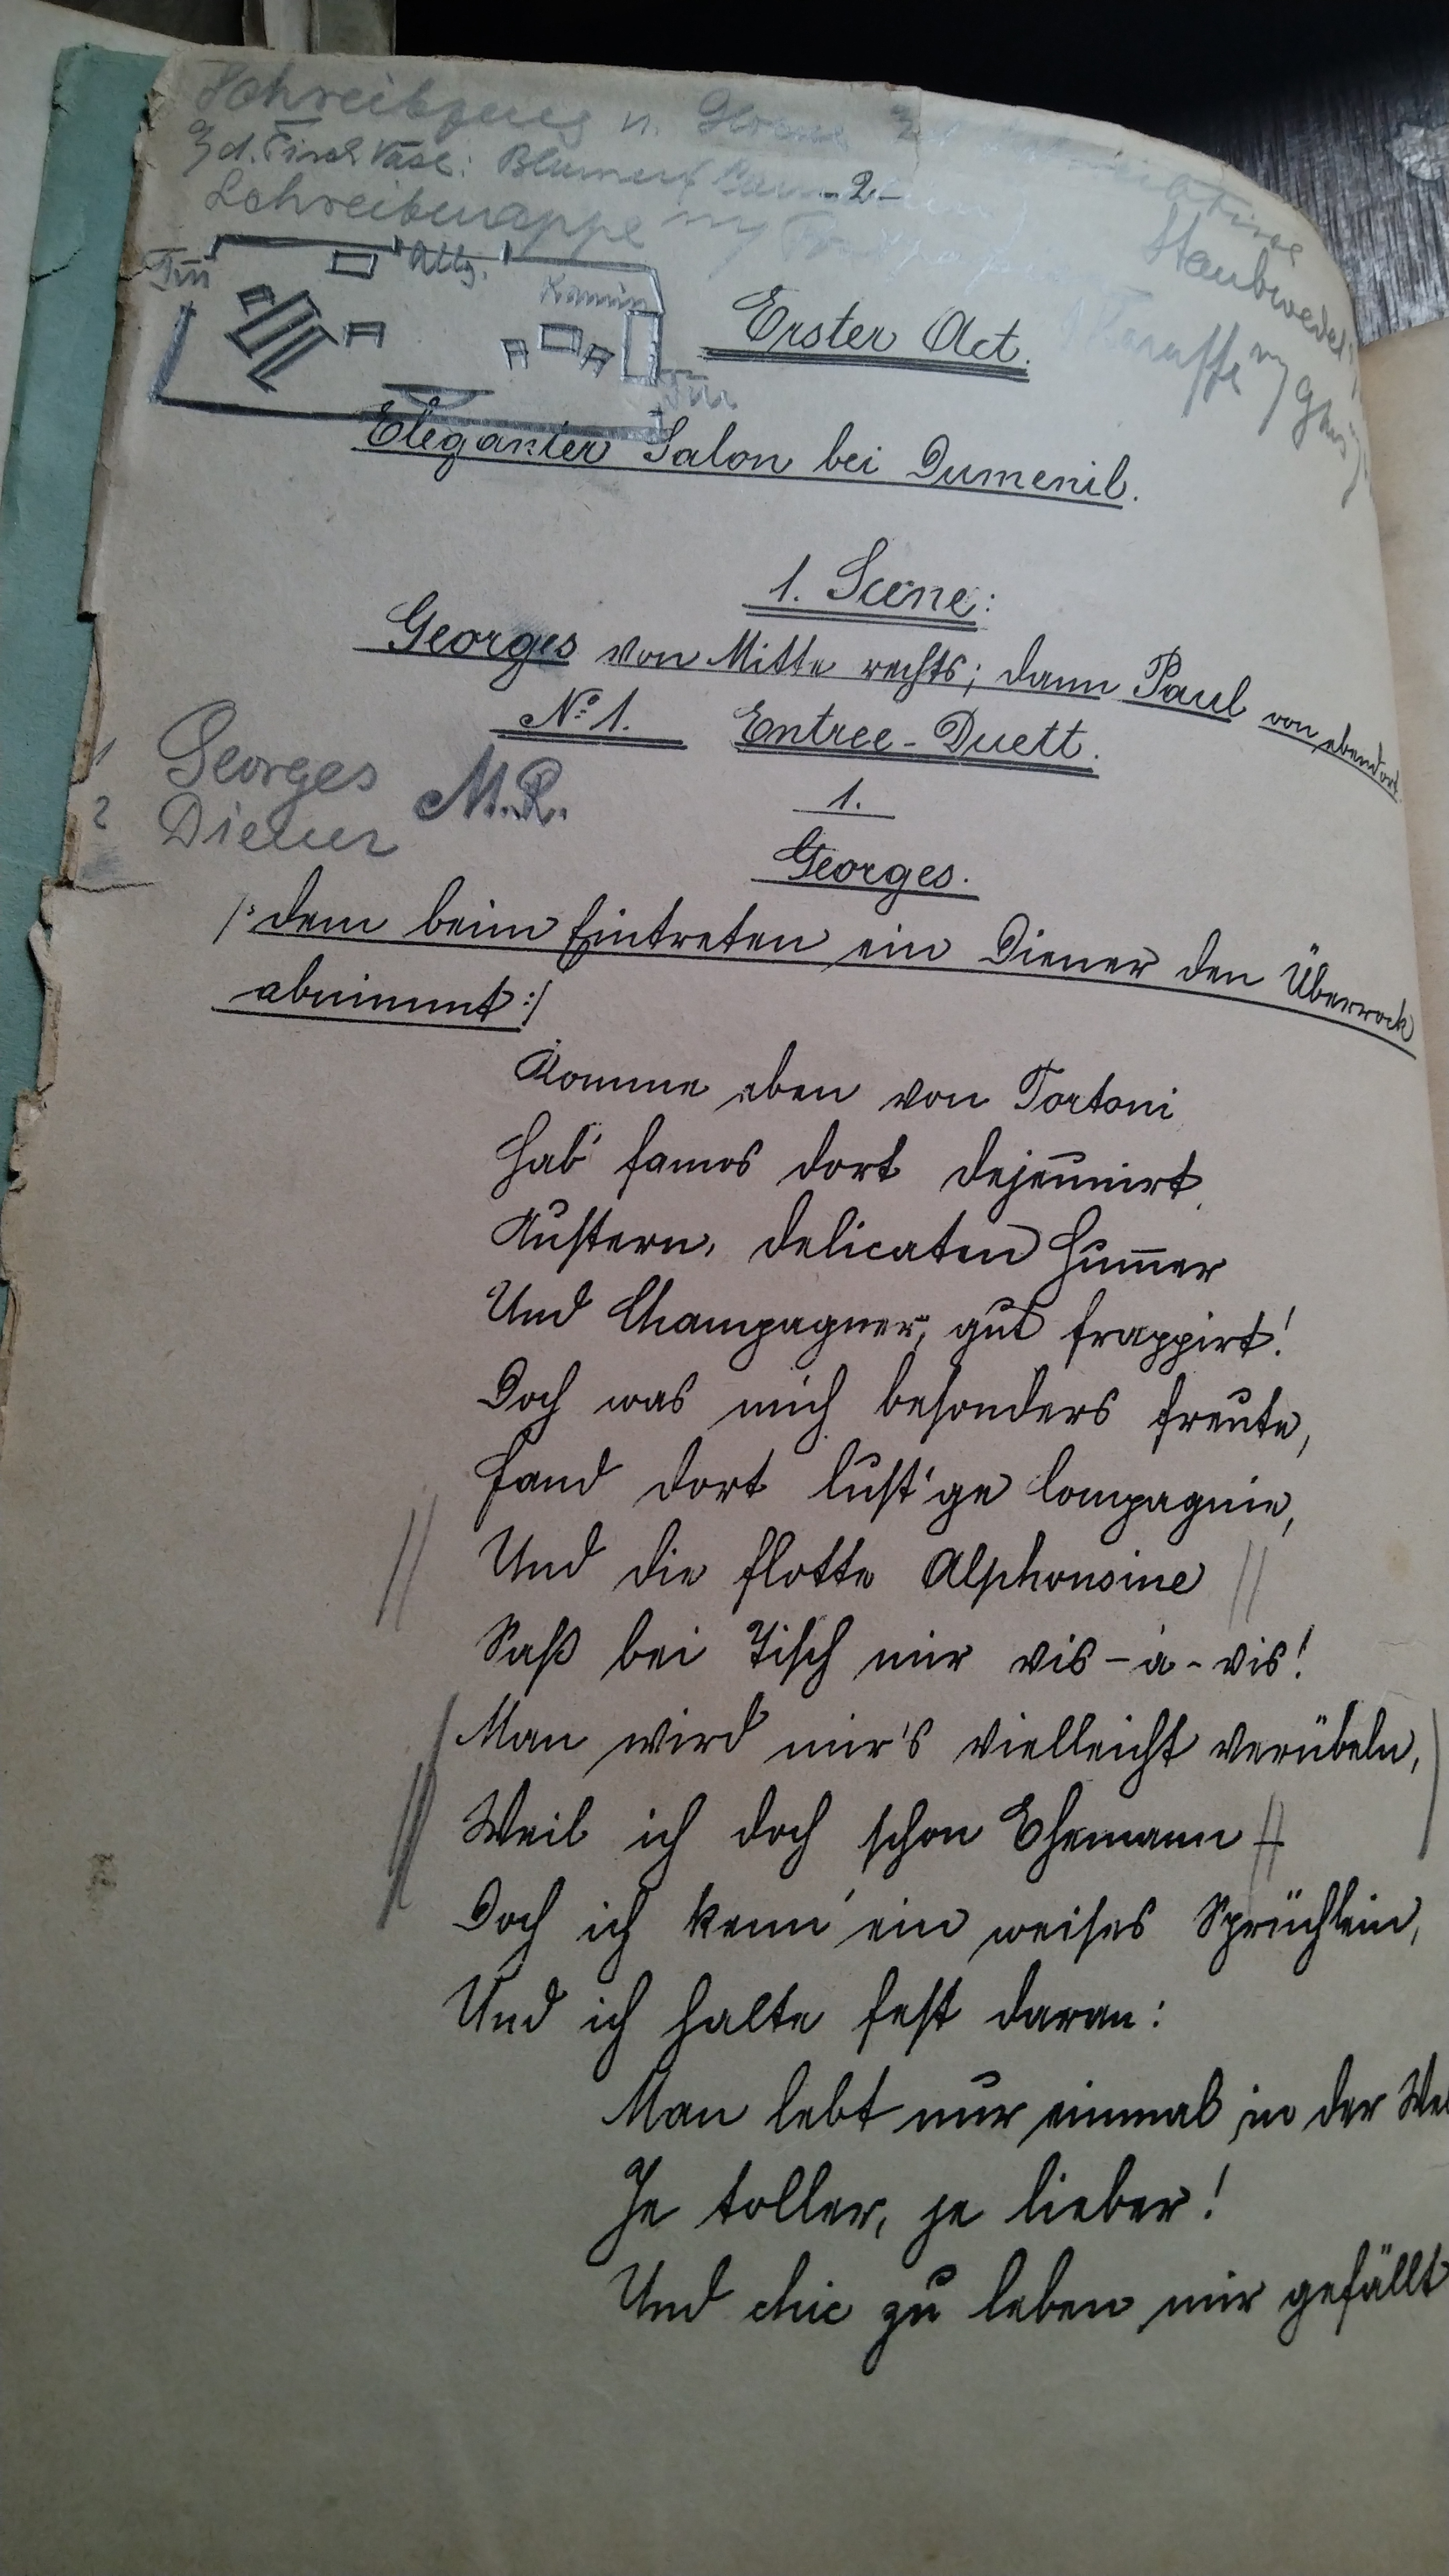 Schreibzeug u.
Tisch Vase: Blumen
- 2 -
Schreibmappe
Staubwedel
Karaffe
Tür
Kamin
Tür
Erster Act.
Eleganter Salon bei Dumenil.
1. Scene:
Georges von Mitte rechts; dann Paul von ebendort.
No 1. Entree-Duett.
1 Georges M.R.
2 Diener
1.
Georges.
/: dem beim Eintreten ein Diener den Überrock
abnimmt :/
Komme eben von Tortoni
Hab' famos dort dejeunirt,
Austern, delicaten Hummer
Und Champagner, gut frappirt!
Doch was mich besonders freute,
Fand dort lust'ge Compagnie,
Und die flotte Alphonsine
Saß bei Tisch mir vis-à-vis!
Man wird mir's vielleicht verübeln,
Weil ich doch schon Ehemann –
Doch ich kenn' ein weises Sprüchlein,
Und ich halte fest daran:
Man lebt nur einmal in der
Je toller, je lieber!
Und chic zu leben mir gefällt